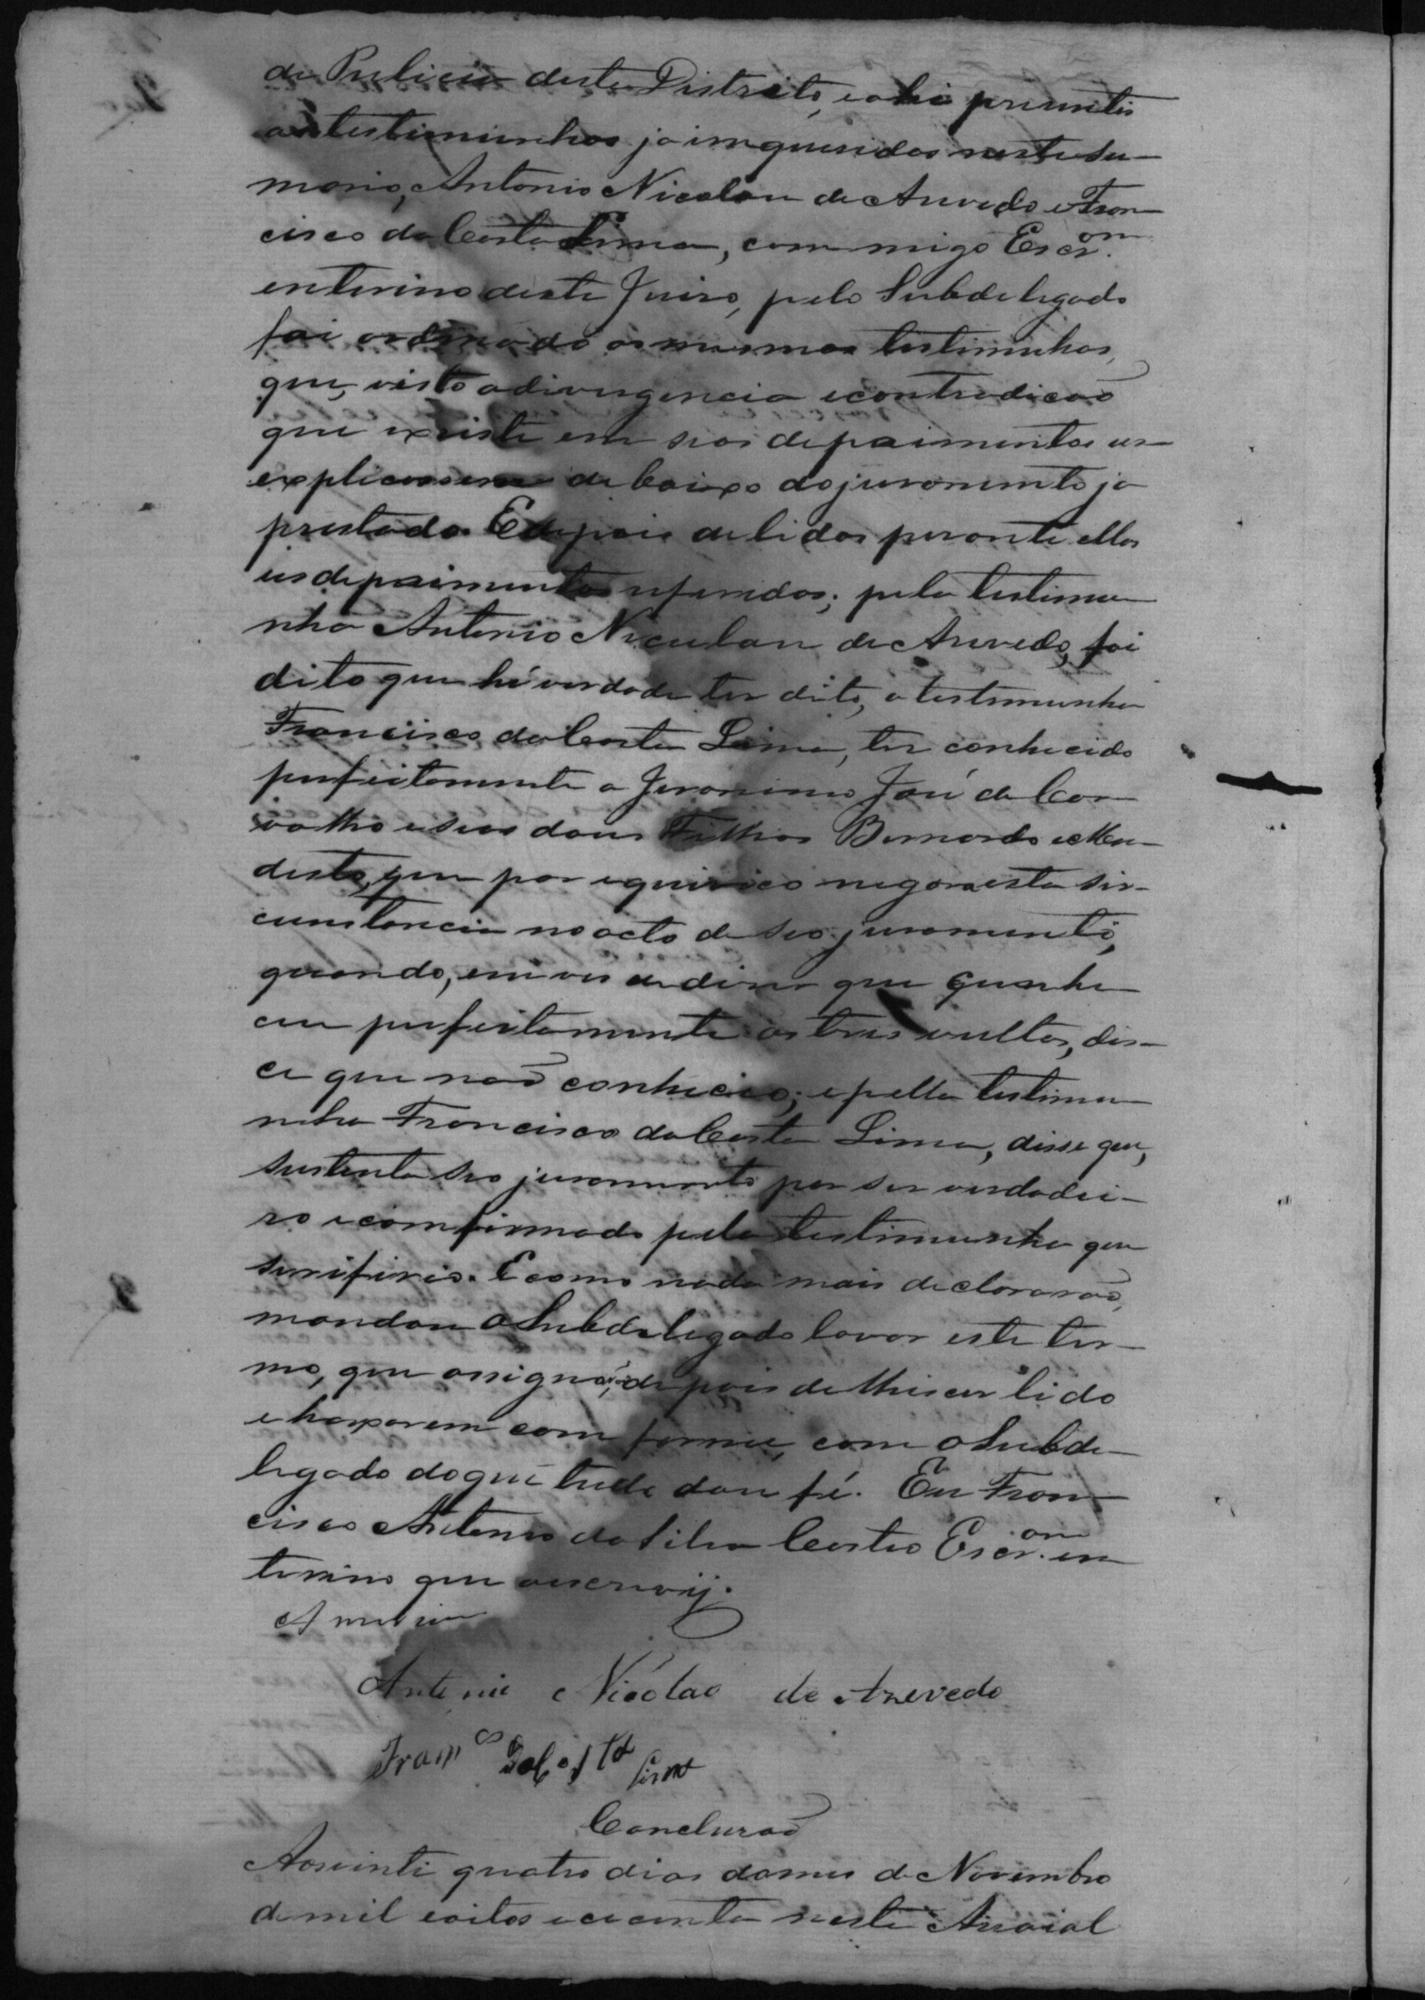 de Pulicia deste Distrito, e ahi presentes
as testimunhas ja imqueridas neste su-
mario, Antonio Nicolau de Asevedo e Fran-
cisco da Costa Lima, com migo Escr.am
enterino deste Juiso, pelo Subdelegado
foi ordenado as mesmas testimunhas,
que, visto a divergencia e contradicaõ
que existe em seos depaimentos us
explicassem de baixo do juramento ja
prestado. E depois de lidos perante ellas
us depaimentos referidos; pela testimu-
nha Antonio Niculau de Asevedo, foi
dito que hé verdade ter dito, a testimunha
Francisco da Costa Lima, ter conhecido
perfeitamente a Jeronimo José de Car-
valho e seos dous Filhos Bernardo e Mo-
desto, que por equivico negou esta sir-
cunstancia no acto de seo juramento,
quando, em ves de diser que cunhe-
ceu perfeitamente os tres vultos, dis-
ce que naõ conheceo; e pella testimu-
nha Francisco da Costa Lima, disse que,
sustenta seo juramento por ser verdadei-
ro e comfirmado pela testimunha que
se rifirio. E como nada mais declararaõ,
mandou o Subdelegado lavar este ter-
mo, que assigna, depois de lhe ser lido
e haxarem com forme, com o Subde-
legado do que tudo dou fé. Eu Fran-
cisco Antonio da Silva Castro Escr.am en-
terino que escrevij.
Antonio Nicolao de Azevedo
Fram.co da Costa Lima
Conclusaõ
Aos vinte quatro dias do mes de Novembro
de mil e oitos e cecenta neste Arraial